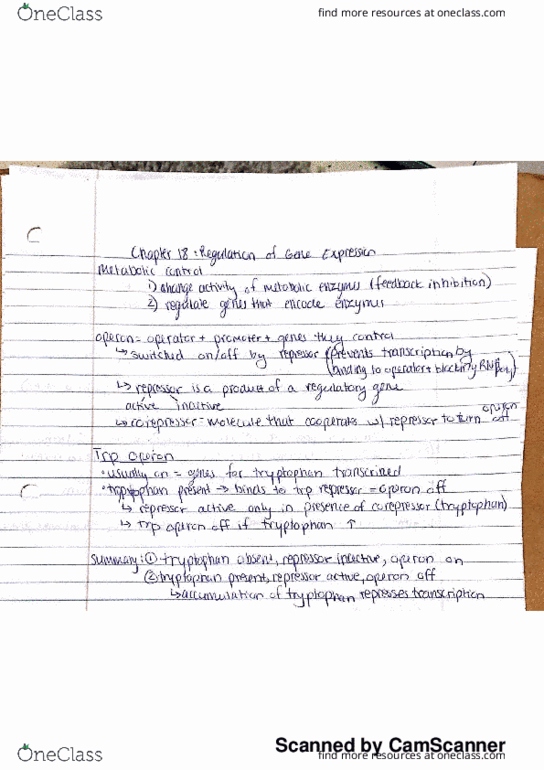 OneClass
find more resources at oneclass.com
Chapter 18: Regulation of Gene Expression
Metabolic control
1) change activity of metabolic enzymes (feedback inhibition)
2) regulate genes that encode enzymes
operon = operator + promoter + genes they control
↳ switched on/off by repressor (prevents transcription by
binding to operator + blocking RNA poly)
↳ repressor is a product of a regulatory gene
active inactive
↳ corepressor = molecule that cooperates w/ repressor to turn operon off
Trp operon
• usually on = genes for tryptophan transcribed
• tryptophan present → binds to trp repressor = operon off
↳ repressor active only in presence of corepressor (tryptophan)
↳ trp operon off if tryptophan ↑
Summary: ① tryptophan absent, repressor inactive, operon on
② tryptophan present, repressor active, operon off
↳ accumulation of tryptophan represses transcription
Scanned by CamScanner
OneClass
find more resources at oneclass.com